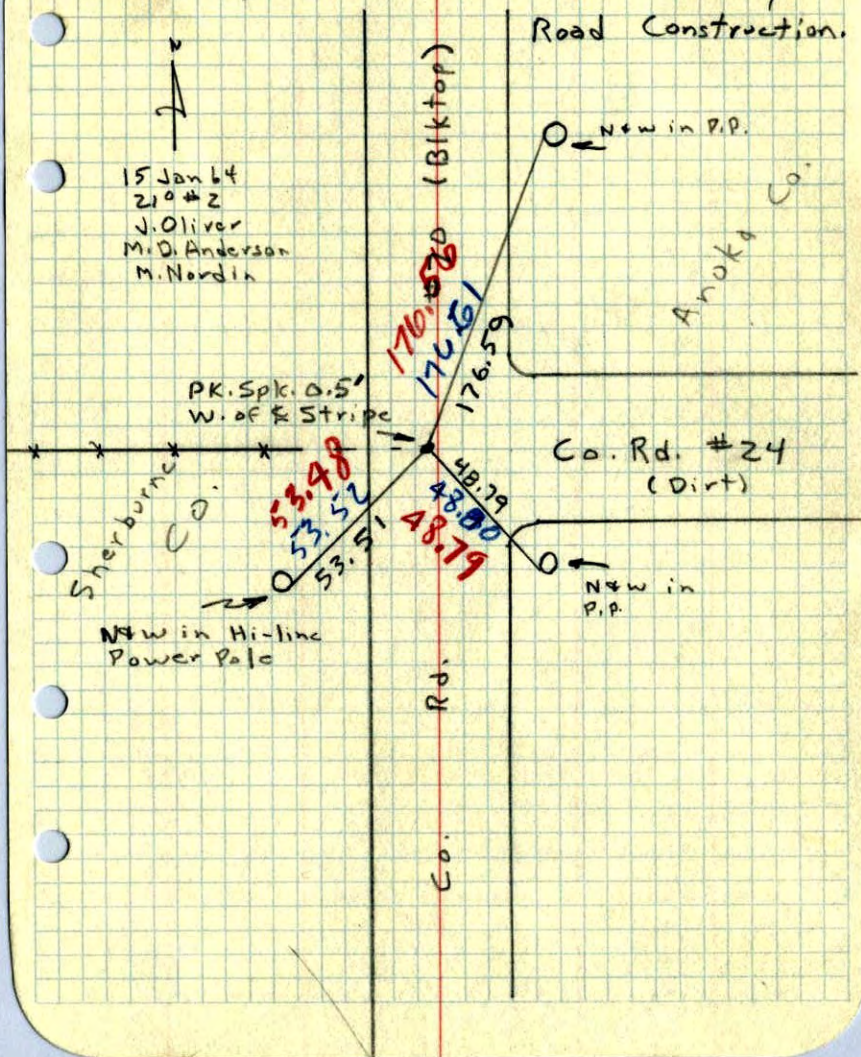 Road Construction.
N
N&W in P.P.
15 Jan 64
21° #2
J. Oliver
M.D. Anderson
M. Nordin
Anoka Co.
Co. Rd. #20 (Blktop)
176.56
176.61
176.59
PK. Spk. 0.5'
W. of ℄ Stripe
Co. Rd. #24
(Dirt)
Sherburne
Co.
53.48
53.52
53.51
48.79
48.80
48.79
N&W in
P.P.
N&W in Hi-line
Power Pole